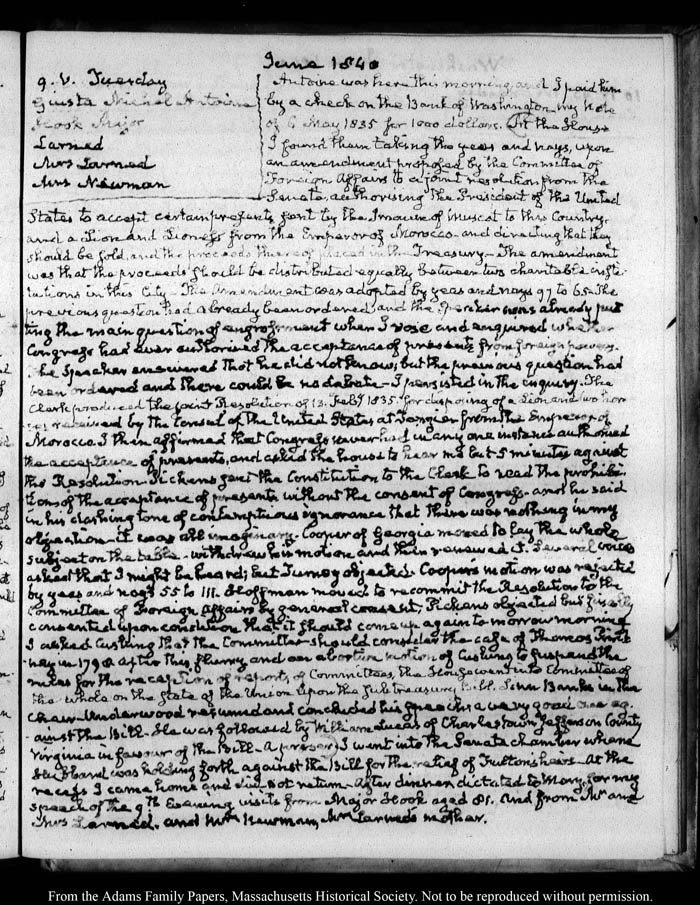 June 1840
9. V. Tuesday
Giusta Michel Antoine
Hook Major
Larned
Mrs Larned
Mrs Newman
Antoine was here this morning and I paid him
by a check on the Bank of Washington my Note
of 6 May 1835 for 1000 dollars. At the House
I found them taking the yeas and nays, upon
an amendment proposed by the Committee of
Foreign Affairs to a joint resolution from the
Senate, authorising the President of the United
States to accept certain presents, sent by the Imaum of Muscat to this Country.
and a Lion and Lioness from the Emperor of Morocco and directing that they
should be sold, and the proceeds thereof placed in the Treasury— The amendment
was that the proceeds should be distributed equally between two charitable insti-
tutions in this City. The Amendment was adopted by yeas and nays 97 to 65. The
previous question had already been ordered, and the Speaker was already put
ting the main question of engrossment when I rose and enquired whether
Congress had ever authorised the acceptance of presents from foreign powers.
The Speaker answered that he did not know, but the previous question had
been ordered and there could be no debate— I persisted in the enquiry. The
Clerk produced the joint Resolution of 13. Feby 1835. for disposing of a Lion and two hor
ses received by the Consul of the United States at Tangier from the Emperor of
Morocco. I then affirmed that Congress never had in any one instance authorised
the acceptance of presents, and asked the house to hear me but 5 minutes against
the Resolution. Pickens sent the Constitution to the Clerk to read the prohibi
tion of the acceptance of presents without the consent of Congress— and he said
in his dashing tone of contemptuous ignorance that there was nothing in my
objection— it was all imaginary. Cooper of Georgia moved to lay the whole
subject on the table— withdrew his motion and then renewed it. Several voices
asked that I might be heard; but Turney objected. Cooper's motion was rejected
by yeas and nays 55 to 111. Hoffman moved to recommit the Resolution to the
Committee of Foreign Affairs by general consent, Pickens objected but finally
consented upon condition that it should come up again to morrow morning
I asked Cushing that the Committee should consider the case of Thomas Pinck
ney in 1798 After this flurry and an abortive motion of Cushing to suspend the
rules for the reception of reports, of Committees, the House went into Committee of
the whole on the state of the Union upon the Subtreasury Bill. Linn Banks in the
Chair— Underwood resumed and concluded his speech a very good one ag-
ainst the Bill— He was followed by William Lucas of Charlestown Jefferson County
Virginia in favour of the Bill— I went into the Senate chamber where
Hubbard was holding forth against the Bill for the relief of Fulton's heirs— At the
recess I came home and did not return— After dinner dictated to Mary, for my
speech of the 9th Evening visits from Major Hook aged 81. and from Mr and
Mrs Larned. and Mrs Newman, Mrs Larned's mother.
From the Adams Family Papers, Massachusetts Historical Society. Not to be reproduced without permission.